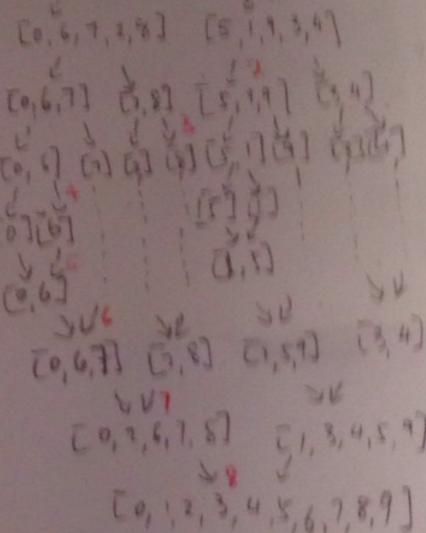 [0, 6, 7, 2, 8] [5, 1, 9, 3, 4]
[0, 6, 7] [2, 8] [5, 1, 9] [3, 4]
[0, 6] [7] [2] [8] [5, 1] [9] [3] [4]
0] [6] [5] [1]
[0, 6] [1, 5]
6
[0, 6, 7] [2, 8] [1, 5, 9] [3, 4]
7
[0, 2, 6, 7, 8] [1, 3, 4, 5, 9]
8
[0, 1, 2, 3, 4, 5, 6, 7, 8, 9]